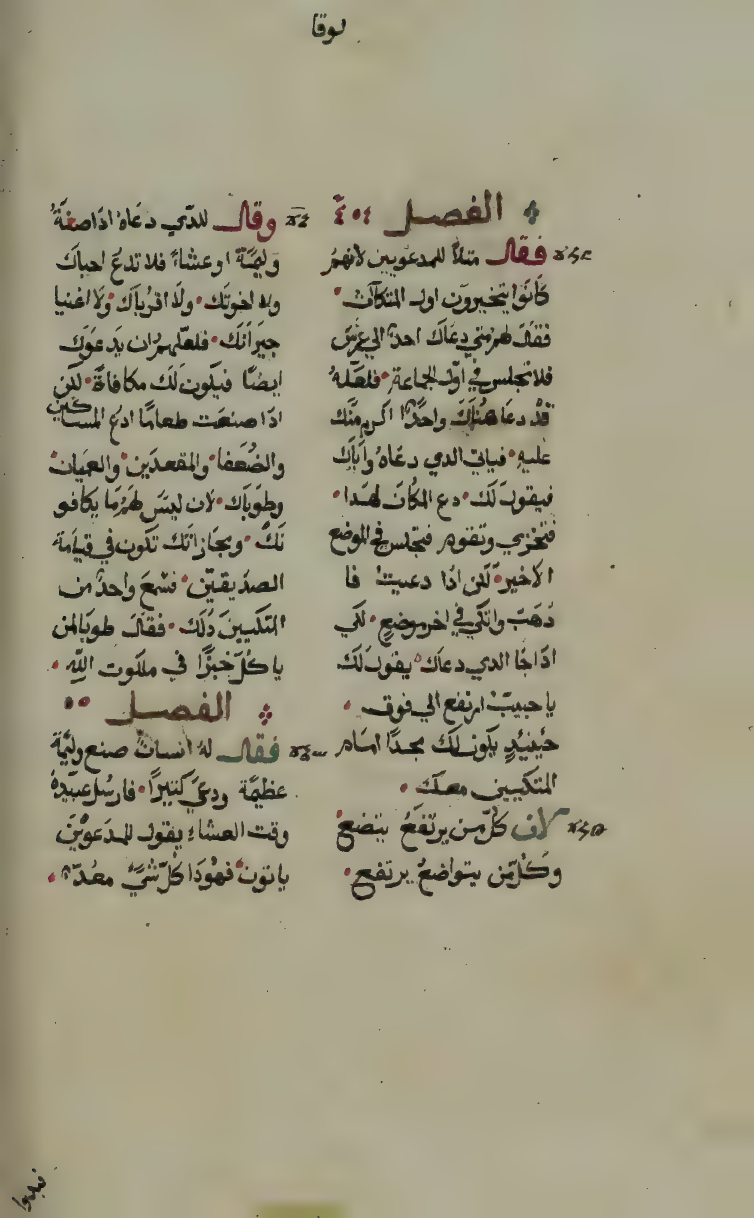 لوقا
الفصل ٥٤
فقال مثلاً للمدعويين لانهم
كانوا يتخيرون اول المتكآت
فقال لهم متي دعاك احدٌ الي عرسٍ
فلا تجلس في اول الجماعة فلعله
قد دعا هناك واحدًا اكرم منك
عليه فياتي الدي دعاه واياك
فيقول لك دع المكان لهدا
فتخزي وتقوم فتجلس في الموضع
الاخير لكن ادا دعيت فا
دهب واتكي في اخر موضع لكي
اداجا الدي دعاك يقول لك
يا حبيب ارتفع الي فوق
حينيدٍ يكون لك مجدًا امام
المتكيين معك
لان كل من يرتفع يتضع
وكل من يتواضع يرتفع
وقال للدي دعاه ادا صنعة
وليمة او عشاءً فلا تدع احباك
ولا اخوتك ولا اقرباك ولا اغنيا
جيرانك فلعلهم ان يدعوك
ايضًا فيكون لك مكافاة لكن
ادا صنعت طعامًا ادع المساكين
والضعفا والمقعدين والعميان
وطوباك لان ليس لهم ما يكافو
نك ومجازاتك تكون في قيامة
الصديقين فسمع واحدٌ من
المتكيين دلك فقال طوبا لمن
ياكل خبزًا في ملكوت الله
الفصل ٥٥
فقال له انسان صنع وليمة
عظيمة ودعي كتيرًا فارسل عبيده
وقت العشاء يقول للمدعويين
ياتون فهودا كل شيء معدٌ